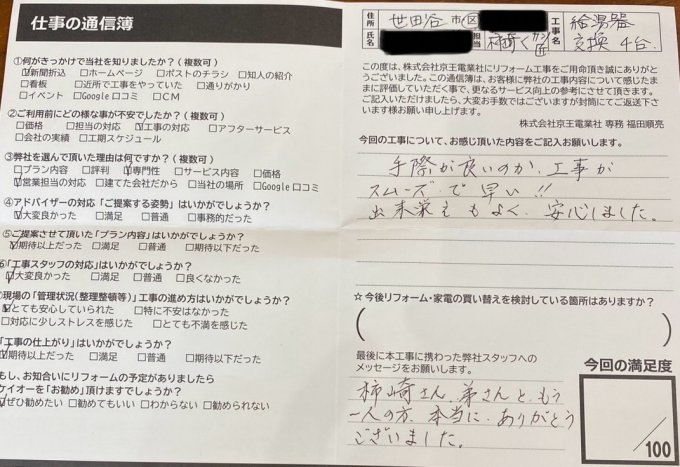 仕事の通信簿
①何がきっかけで当社を知りましたか?(複数可)
☑新聞折込 □ホームページ □ポストのチラシ □知人の紹介
□看板 □近所で工事をやっていた □通りがかり
□イベント □Google口コミ □CM
②ご利用前にどのような事が不安でしたか?(複数可)
□価格 □担当の対応 ☑工事の対応 □アフターサービス
□会社の実績 □工期スケジュール
③弊社を選んで頂いた理由は何ですか?(複数可)
□プラン内容 □評判 ☑専門性 □サービス内容 □価格
☑営業担当の対応 □建てた会社だから □当社の場所 □Google口コミ
④アドバイザーの対応「ご提案する姿勢」はいかがでしょうか?
☑大変良かった □満足 □普通 □事務的だった
⑤ご提案させて頂いた「プラン内容」はいかがでしょうか?
☑期待以上だった □満足 □普通 □期待以下だった
⑥「工事スタッフの対応」はいかがでしょうか?
☑大変良かった □満足 □普通 □良くなかった
⑦現場の「管理状況(整理整頓等)」工事の進め方はいかがでしょうか?
☑とても安心していられた □特に不安はなかった
□対応に少しストレスを感じた □とても不満を感じた
「工事の仕上がり」はいかがでしょうか?
☑期待以上だった □満足 □普通 □期待以下だった
もし、お知合いにリフォームの予定がありましたら
ケイオーを「お勧め」頂けますでしょうか?
☑ぜひ勧めたい □勧めてもいい □わからない □勧められない
住所 世田谷 市・区 工事名 給湯器
氏名 担当 柿崎く 交換 4台.
この度は、株式会社京王電業社にリフォーム工事をご用命頂き誠にありがと
うございました。この通信簿は、お客様に弊社の工事内容について感じたま
まに評価していただく事で、更なるサービス向上の参考にさせて頂きます。
ご記入いただけましたら、大変お手数ではございますが封筒にてご返送下さ
います様お願い申し上げます。
株式会社京王電業社 専務 福田順亮
今回の工事について、お感じ頂いた内容をご記入お願いします。
手際が良いのか、工事が
スムーズで早い!!
出来栄えもよく、安心しました。
☆今後リフォーム・家電の買い替えを検討している箇所はありますか?
( )
最後に本工事に携わった弊社スタッフへの
メッセージをお願いします。
柿崎さん、弟さんと、もう
一人の方、本当に、ありがとう
ございました。
今回の満足度
/100